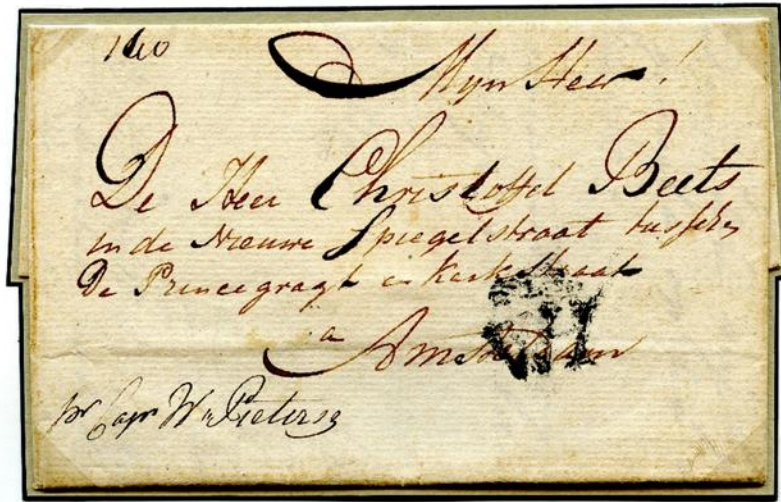 160
Mijn Heer!
De Heer Christoffel Beets
in de Nieuwe Spiegelstraat tusschen
De Princegragt en Kerkstraat
a Amsterdam
pr Capn Wm Pieters